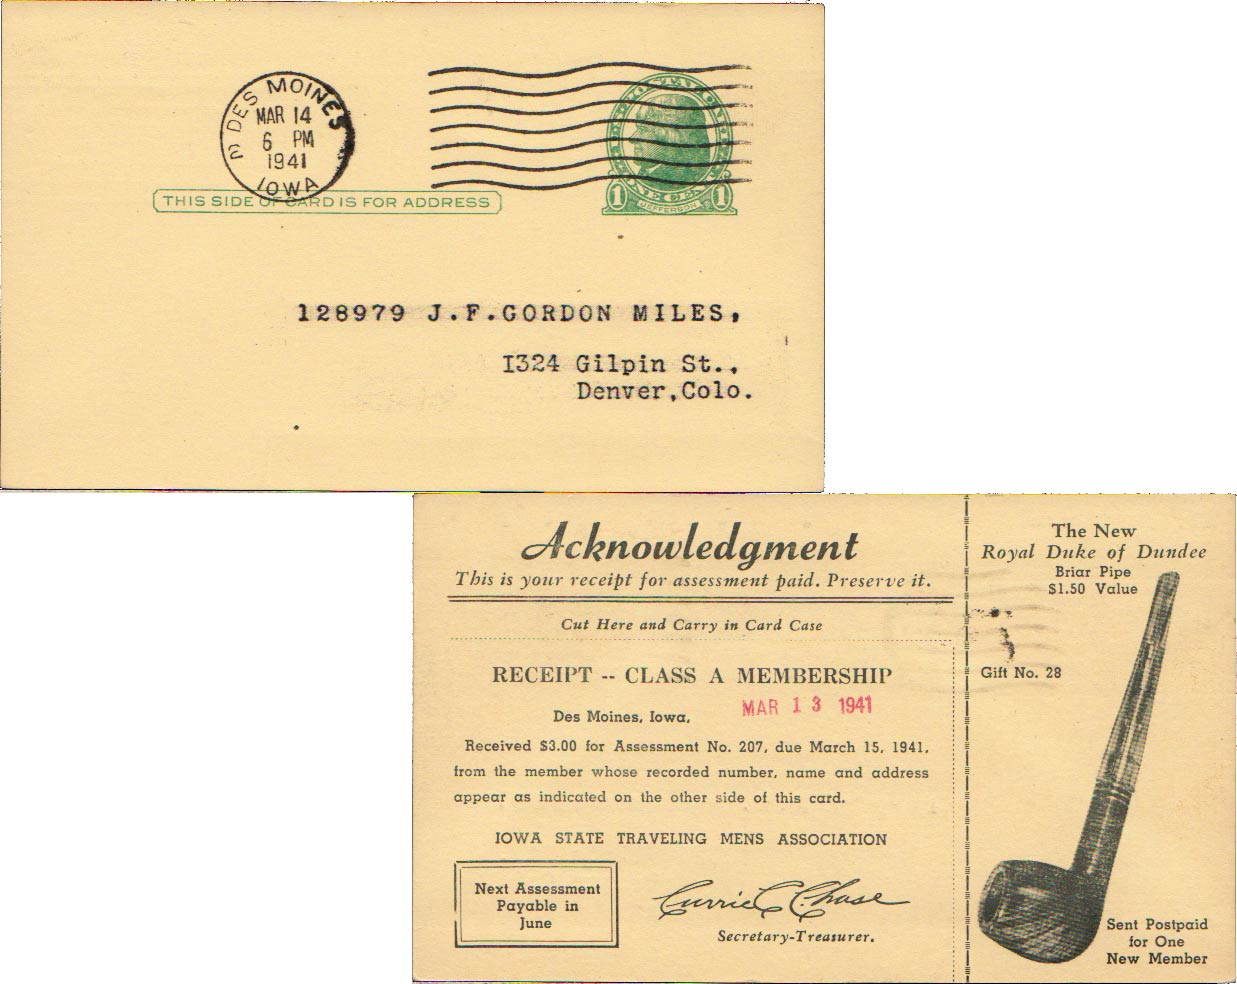 DES MOINES
MAR 14
6 PM
1941
IOWA
THIS SIDE OF CARD IS FOR ADDRESS
1 1
JEFFERSON
128979 J.F.GORDON MILES,
1324 Gilpin St.,
Denver,Colo.
Acknowledgment
This is your receipt for assessment paid. Preserve it.
Cut Here and Carry in Card Case
RECEIPT -- CLASS A MEMBERSHIP
Des Moines, Iowa,
MAR 13 1941
Received $3.00 for Assessment No. 207, due March 15, 1941,
from the member whose recorded number, name and address
appear as indicated on the other side of this card.
IOWA STATE TRAVELING MENS ASSOCIATION
Next Assessment
Payable in
June
Currie C. Chase
Secretary-Treasurer.
The New
Royal Duke of Dundee
Briar Pipe
$1.50 Value
Gift No. 28
Sent Postpaid
for One
New Member